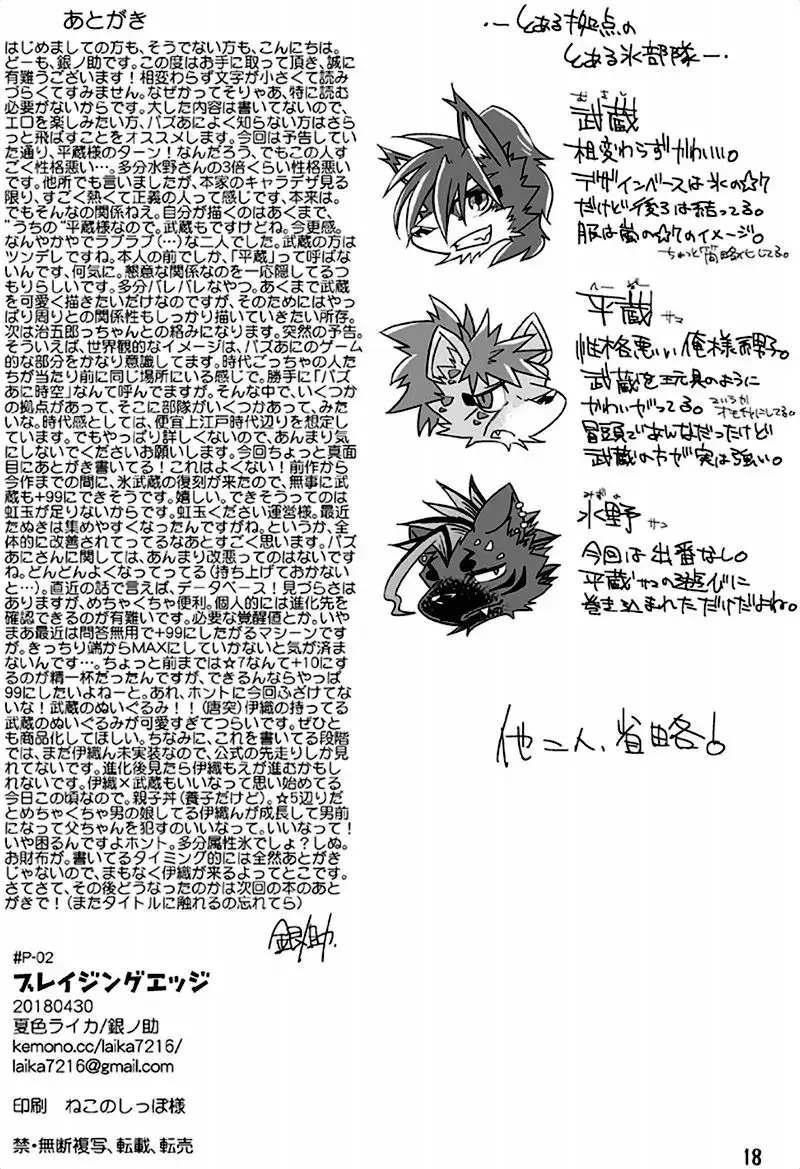 あとがき
はじめましての方も、そうでない方も、こんにちは。
どーも、銀ノ助です。この度はお手に取って頂き、誠に
有難うございます！相変わらず文字が小さくて読み
づらくてすみません。なぜかってそりゃあ、特に読む
必要がないからです。大した内容は書いてないので、
エロを楽しみたい方、パズあによく知らない方はさら
っと飛ばすことをオススメします。今回は予告してい
た通り、平蔵様のターン！なんだろう、でもこの人す
ごく性格悪い…。多分水野さんの3倍くらい性格悪い
です。他所でも言いましたが、本家のキャラデザ見る
限り、すごく熱くて正義の人って感じです、本来は。
でもそんなの関係ねえ。自分が描くのはあくまで、
”うちの”平蔵様なので。武蔵もですけどね。今更感。
なんやかやでラブラブ(…)な二人でした。武蔵の方は
ツンデレですね。本人の前でしか、「平蔵」って呼ばな
いんです、何気に。懇意な関係なのを一応隠してるつ
もりらしいです。多分バレバレなやつ。あくまで武蔵
を可愛く描きたいだけなのですが、そのためにはやっ
ぱり周りとの関係性もしっかり描いていきたい所存。
次は治五郎っちゃんとの絡みになります。突然の予告。
そういえば、世界観的なイメージは、パズあにのゲーム
的な部分をかなり意識してます。時代ごっちゃの人た
ちが当たり前に同じ場所にいる感じで。勝手に「パズ
あに時空」なんて呼んでますが。そんな中で、いくつか
の拠点があって、そこに部隊がいくつかあって、みた
いな。時代感としては、便宜上江戸時代辺りを想定し
ています。でもやっぱり詳しくないので、あんまり気
にしないでくださいお願いします。今回ちょっと真面
目にあとがき書いてる！これはよくない！前作から
今作までの間に、氷武蔵の復刻が来たので、無事に武
蔵も+99にできそうです。嬉しい。できそうってのは
虹玉が足りないからです。虹玉ください運営様。最近
たぬきは集めやすくなったんですがね。というか、全
体的に改善されてってるなあとすごく思います。パズ
あにさんに関しては、あんまり改悪ってのはないです
ね。どんどんよくなってってる(持ち上げておかない
と…)。直近の話で言えば、データベース！見づらさは
ありますが、めちゃくちゃ便利。個人的には進化先を
確認できるのが有難いです。必要な覚醒値とか。いや
まあ最近は問答無用で+99にしたがるマシーンです
が。きっちり端からMAXにしていかないと気が済ま
ないんです…。ちょっと前までは☆7なんて+10にす
るのが精一杯だったんですが、できるんならやっぱ
99にしたいよねーと。あれ、ホントに今回ふざけてな
いな！武蔵のぬいぐるみ！！(唐突)伊織の持ってる
武蔵のぬいぐるみが可愛すぎてつらいです。ぜひと
も商品化してほしい。ちなみに、これを書いてる段階
では、まだ伊織ん未実装なので、公式の先走りしか見
れてないです。進化後見たら伊織もえが進むかもし
れないです。伊織×武蔵もいいなって思い始めてる
今日この頃なので。親子丼(養子だけど)。☆5辺りだ
とめちゃくちゃ男の娘してる伊織んが成長して男前
になって父ちゃんを犯すのいいなって。いいなって！
いや困るんですよホント。多分属性氷でしょ？しぬ。
お財布が。書いてるタイミング的には全然あとがき
じゃないので、まもなく伊織が来るよってとこです。
さてさて、その後どうなったのかは次回の本のあと
がきで！(またタイトルに触れるの忘れてら)
銀ノ助.
#P-02
ブレイジングエッジ
20180430
夏色ライカ/銀ノ助
kemono.cc/laika7216/
laika7216@gmail.com
印刷 ねこのしっぽ様
禁・無断複写、転載、転売
・―とある拠点の
とある氷部隊―・
むさし
武蔵
相変わらずかわいい。
デザインベースは氷の☆7
だけど後ろは結ってる。
服は嵐の☆7のイメージ。
ちょっと簡略化してる。
へーぞー
平蔵サマ
性格悪い俺様男子。
武蔵を玩具のように
かわいがってる。
というかオモチャにしてる。
冒頭であんなだったけど
武蔵の方が実は強い。
みずの
水野サン
今回は出番なし。
平蔵サマの遊びに
巻き込まれただけだよね。
他二人、省略！
18